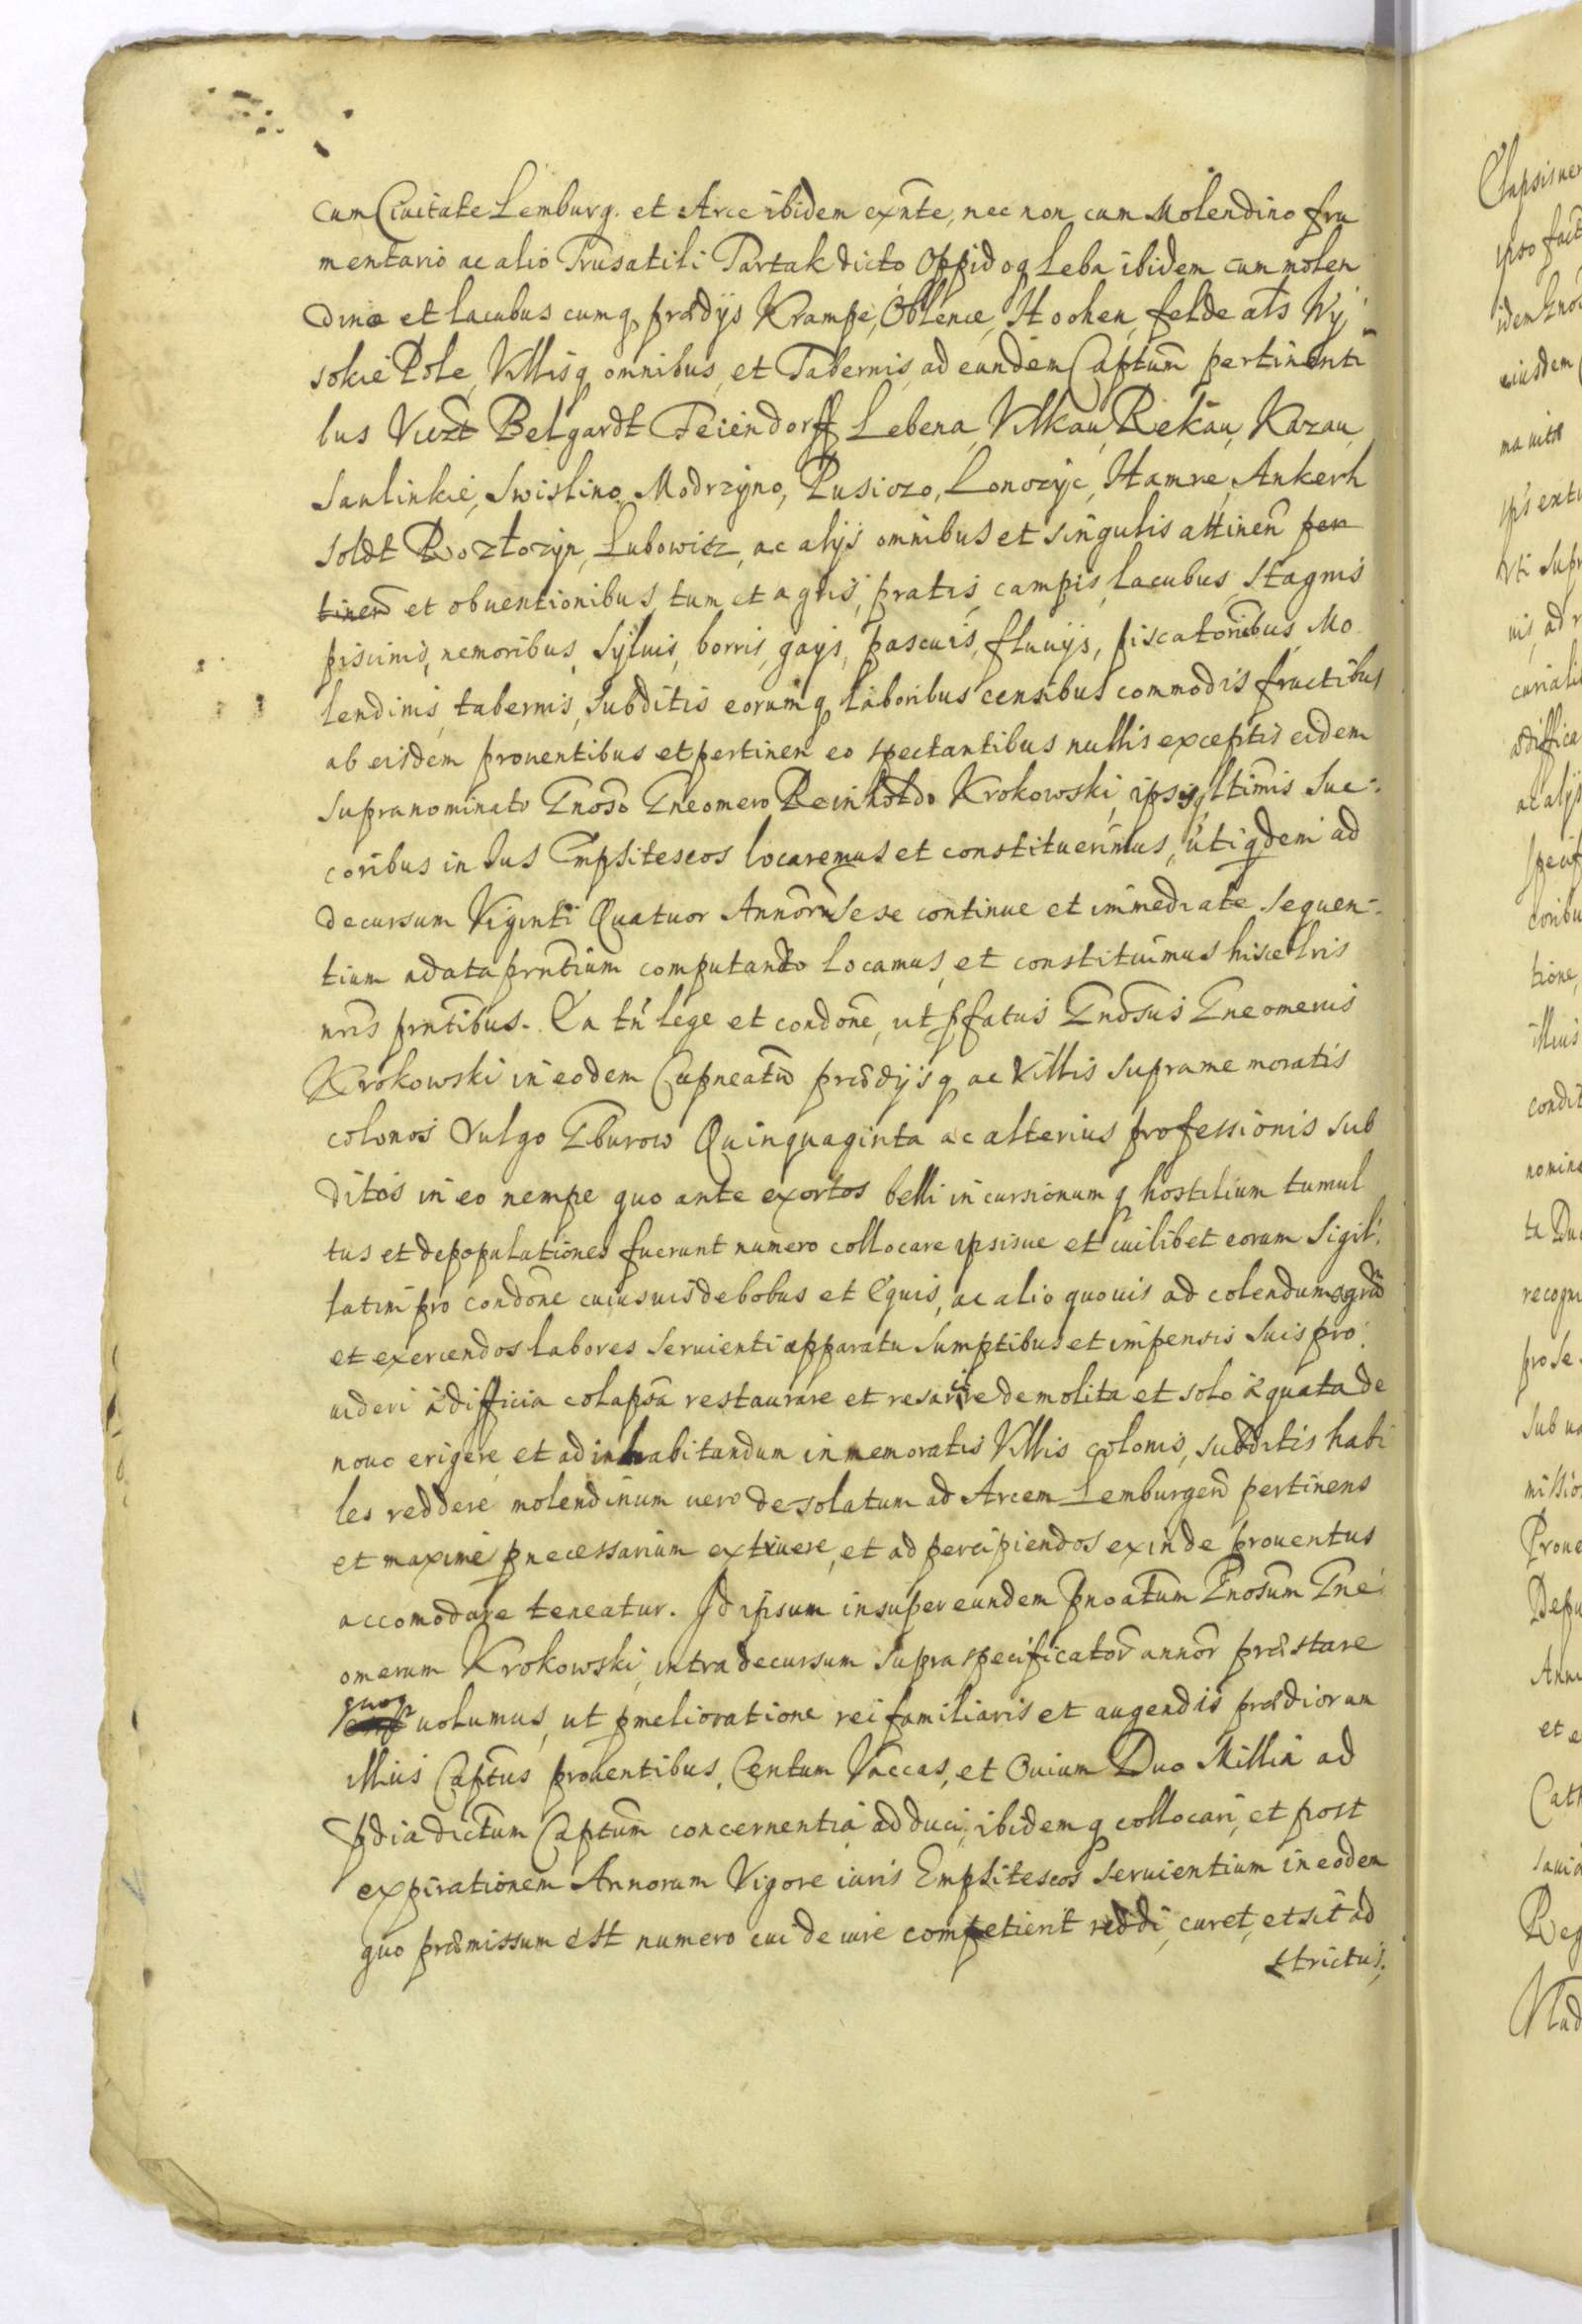 cum Ciuitate Lemburg. et Arce ibidem exnte, nec non cum Molendino fru
mentario ac alio Trusatili Tartak dicto Oppidoq Leba ibidem cum molen
dino et lacubus cumq prædijs Krampe, Oblence, Hoohen felde als Wy
sokie Pole, Villisq omnibus, et Tabernis, ad eundem Captum pertinenti
bus Viczt Belgardt Feiendorff Lebena, Villkau, Rekau, Kazau,
Saulinkie, Swislino, Modrzyno, Pusiczo, Lonczyc, Hamre, Ankerh
soldt Roztozyn, Lubowicz, ac alijs omnibus et singulis attinen per
tinen et obuentionibus, tum et agris, pratis, campis, lacubus, stagnis
piscinis, nemoribus, syluis, borris, gays, pascuis, fluuijs, piscatoribus, Mo
lendinis, tabernis, subditis eorumq laboribus censibus commodis fructibus
ab eisdem prouentibus et pertinen eo spectantibus nullis exceptis eidem
supranominato Gnoso Gneomero Reinholdo Krokowski, ipsisq ltimis suc-
coribus in Jus Empsiteseos locaremus et constitueremus, uti qdem ad
decursum Viginti Quatuor Annorum sese continue et immediate sequen-
tium a data prntium computando locamus, et constituimus hisce lris
nris prntibus. Ea tn lege et condone, ut pfatus Gnosus Gneomerus
Krokowski in eodem Capneatu prædijsq ac Villis supramemoratis
colonos vulgo Gburow Quinquaginta ac alterius professionis sub
ditos in eo nempe quo ante exortos belli incursionumq hostilium tumul
tus et depopulationes fuerunt numero collocare ipsisue et cuilibet eorum sigil-
latim pro condone cuiusuis de bobus et Equis, ac alio quouis ad colendum agru
et exercendos labores seruienti apparatu sumptibus et impensis suis pro-
uideri ædifficia colapsa restaurare et resarcire demolita et solo æquata de
nouo erigere et ad inhabitandum in memoratis Villis colonis, subditis habi
les reddere molendinum uero desolatum ad Arcem Lemburgen pertinens
et maxime pnecessarium extruere, et ad percipiendos exinde prouentus
accomodare teneatur. Id ipsum insuper eundem pnoatum Gnosum Gne-
omerum Krokowski, intra decursum supraspecificator annor præstare
quoq uolumus, ut pmelioratione rei familiaris et augendis prædiorum
illius Captus prouentibus, Centum Vaccas, et Ouium Duo Millia ad
pdia dictum Captum concernentia adduci, ibidemq collocari, et post
expirationem Annorum Vigore iuris Empsiteseos seruientium in eodem
quo præmissum est numero cui de iure competierit reddi, curet, et sit ad
strictus,